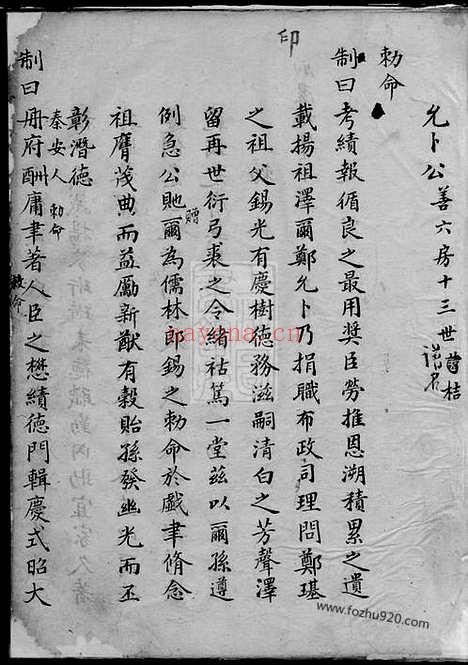 印
允卜公善六房十三世
諱名
勅命
制曰考績報循良之最用奨臣勞推恩溯積累之遺
載揚祖澤爾鄭允卜乃捐職布政司理問鄭堪
之祖父錫光有慶樹德務滋嗣清白之芳聲澤
留再世衍弓裘之令緒祜篤一堂兹以爾孫遵
例急公貤贈爾為儒林郎錫之勅命於戯聿脩念
祖膺茂典而益勵新猷有穀貽孫發幽光而丕
彰潛德
泰安人勅命
制曰册府酬庸聿著人臣之懋績德門輯慶式昭大
敕命
nayona.cn
www.fozhu920.com